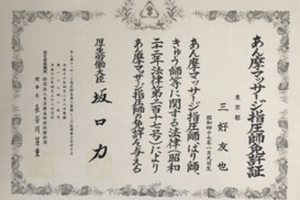 あん摩マッサージ指圧師免許証
東京都
三好友也
昭和四十七年一月九日生
あん摩マッサージ指圧師、はり師、
きゅう師等に関する法律（昭和
二十二年法律第二百十七号）により
あん摩マッサージ指圧師の免許を与える
厚生労働大臣 坂口力